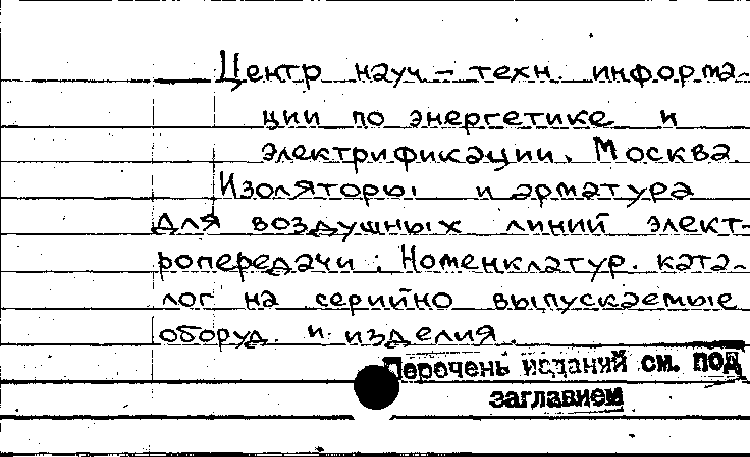 Центр науч-техн. информа-
ции по энергетике и
электрификации. Москва.
Изоляторы и арматура
для воздушных линий элект-
ропередачи: Номенклатур. ката-
лог на серийно выпускаемые
оборуд. и изделия.
Перечень изданий см. под
заглавием